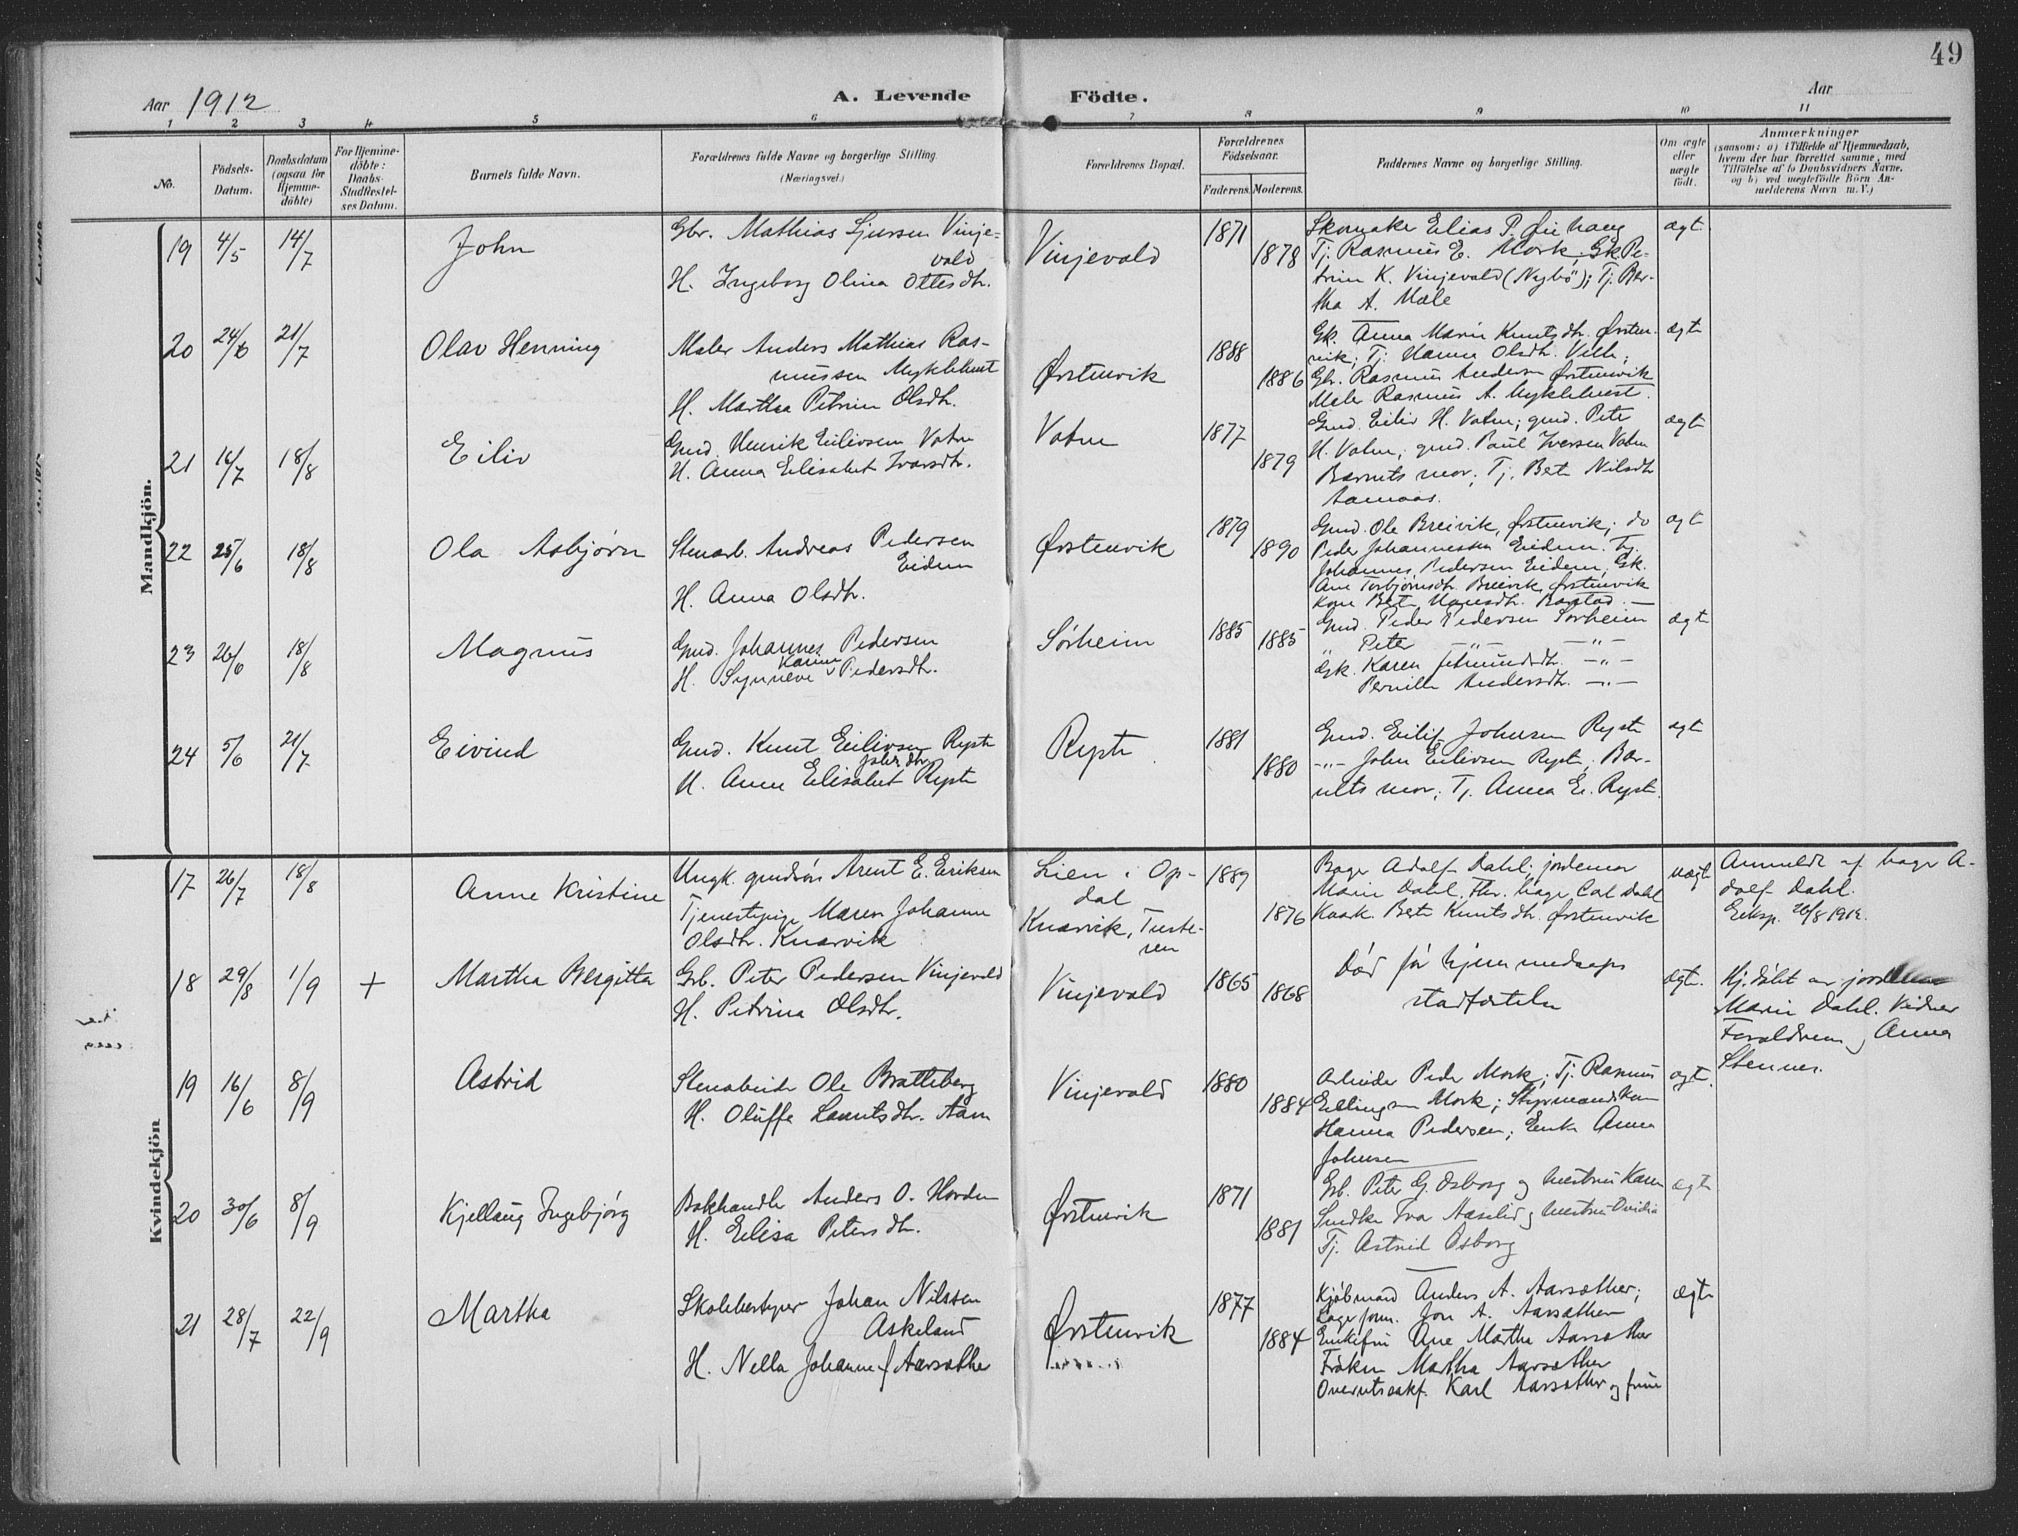 49
Aar 1912
A. Levende Födte.
Aar
1 2 3 4 5 6 7 8 9 10 11
No.
Födsels-
Datum.
Daabsdatum
(ogsaa for
Hjemme-
döbte)
For Hjemme-
döbte:
Daabs-
Stadfæstel-
ses Datum.
Barnets fulde Navn.
Forældrenes fulde Navne og borgerlige Stilling.
(Næringsvei.)
Forældrenes Bopæl.
Forældrenes
Födselsaar.
Faderens. Moderens.
Faddernes Navne og borgerlige Stilling.
Om ægte
eller
uægte
födt.
Anmærkninger
(saasom: a) i Tilfælde af Hjemmedaab,
hvem der har forrettet samme, med
Tilföielse af to Daabsvidners Navne,
og b) ved uægtefödte Börn An-
melderens Navn m. V.)
Mandkjön.
19 4/5 14/7 John
Gbr. Mathias Sjursen Vinje-
vold
H. Ingeborg Olina Ottesdtr.
Vinjevold 1871 1878
Skomaker Elias P.
Tj. Rasmus E. Mork; Gk Pe-
trine K. Vinjevold (Nybö); Tj. Ber-
tha A. Mæle
ægt
20 24/6 21/7 Olav Henning
Maler Anders Mathias Ras-
mussen Myklebust
H. Martha Petrine Olsdtr.
Ørstenvik 1888 1886
Gk. Anna Marie Knutsdtr. Ørsten-
vik; Tj. Hanna Olsdtr. Velle;
Gbr. Rasmus Andersen Ørstenvik
Maler Rasmus A. Myklebust.
ægt
21 16/7 18/8 Eiliv
Gmd. Henrik Eilivsen Vatne
H. Anna Elisabet Ivarsdtr.
Vatne 1877 1879
Gmd. Eiliv H. Vatne; gmd. Peter
H. Vatne; gmd. Paul Iversen Vatne
Barnets mor; Tj. Berte Nilsdtr
Aamaas.
ægt
22 25/6 18/8 Ola Asbjørn
Stenarb. Andreas Pedersen
Eidem
H. Anna Olsdtr.
Ørstenvik 1879 1890
Gmd. Ole Breivik, Ørstenvik; do
Peder Johannessen Eidem. Tj.
Johannes Pedersen Eidem, Gk.
Ane Torbjørnsdtr. Breivik, Ørstenvik
Kone Berte Hansdtr. Barstad. —
ægt
23 26/6 18/8 Magnus
Gmd. Johannes Pedersen
H. Synneve Karine Pedersdtr.
Sørheim 1885 1885
Gmd. Peder Pedersen Sørheim
" Peter —"— —"—
Gk. Karen Jetmundsdtr. —"—
Pernille Andersdtr. —"—
ægt
24 5/6 21/7 Eivind
Gmd. Knut Eilivsen Ryste
H. Anne Elisabet Ryste
Ryste 1881 1880
Gmd. Eilif Johnsen Ryste
—"— John Eilivsen Ryste, Bar-
nets mor; Tj. Anna E. Ryste.
ægt
Kvindekjön
17 26/7 18/8 Anne Kristine
Ungk. gmdsøn Arnt E. Eriksen
Tjenestepige Maren Johanne
Olsdtr. Knarvik
Lien i Op-
dal
Knarvik, Tuste-
ren
1889 1876
Bager Adolf Dahl, jordemor
Marie Dahl, Fhv. bage Carl Dahl
Kaak. Berte Knutsdtr. Ørstenvik
uægt
Anmeldt af bager A-
dolf Dahl.
Eksp. 26/8 1912.
18 29/8 1/9 + Martha Bergitta
Grb. Peter Pedersen Vinjevold
H. Petrina Olsdtr.
Vinjevold 1865 1868
Død før hjemmedaaps
stadfæstelse
ægt.
Hj. døbt av jordemor
Marie Dahl. Vidner
Forældrene og Anna
Stennes.
19 16/6 8/9 Astrid
Stenarbeider Ole Bratteberg
H. Oluffa Lauritsdtr. Aam
Vinjevold 1880 1884
Arbeider Peder Mork; Tj. Rasmus
Ellingsen Mork; Styrmandskone
Hanna Pedersen; Enke Anna
Johnsen
ægt.
20 30/6 8/9 Kjellaug Ingebjørg
Bokhandler Anders O. Hovden
H. Elisa Petersdtr.
Ørstenvik 1871 1881
Grb. Peter G. Osborg og hustru Karen
Snedker Ivar Aaslid og hustru Ovidia
Tj. Astrid Osborg
ægt
21 28/7 22/9 Martha
Skolebestyrer Johan Nilssen
Askeland
H. Nella Johanne f. Aarsæther
Ørstenvik 1877 1884
Kjøbmand Anders A. Aarsæther;
Lagerform. Jon A. Aarsæther
Enkefru Ane Marthe Aarsæther
Frøken Martha Aarsæther
Overretssakf. Karl Aarsæther og frue
ægte